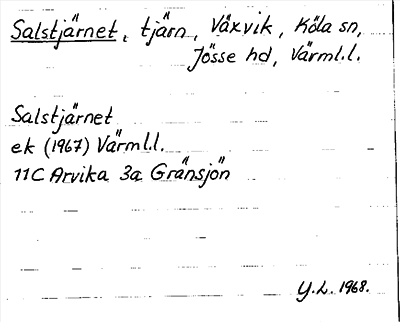 Salstjärnet, tjärn, Våxvik, Köla sn,
Jösse hd, Värml.l.
Salstjärnet
ek (1967) Värml.l.
11C Arvika 3a Gränsjön
Y.L. 1968.